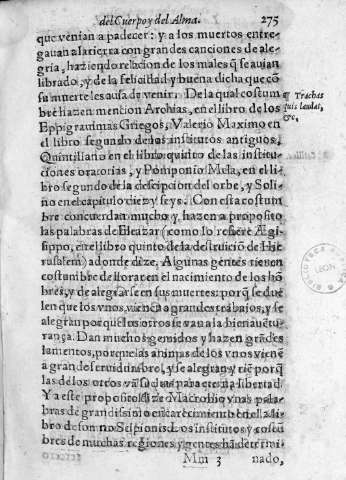 del Cuerpo y del Alma. 275
que venian a padecer: y a los muertos entre-
gauan a la tierra con grandes canciones de ale-
gria, haziendo relacion de los males q̃ se auian
librado, y de la felicidad y buena dicha que cõ
su muerte les auia de venir. De la qual costum
bre hazen mencion Archias, en el libro de los
Epigrammas Griegos, Valerio Maximo en
el libro segundo de los institutos antiguos,
Quintiliano en el libro quinto de las institu-
ciones oratorias, y Pomponio Mela, en el li-
bro segundo de la descipcion del orbe, y Soli-
no en el capitulo diez y seys. Con esta costum
bre concuerdan mucho y hazen a proposito
las palabras de Eleazar (como lo refiere Ægi-
sippo, ẽ el libro quinto de la destruició de Hie
rusalem) adonde dize, Algunas gentes tienen
costumbre de llorar en el nacimiento de los hõ
bres, y de alegrarse en sus muertes: porq̃ se due
len que los vnos, vienẽ a grandes trabajos, y se
alegran porque los otros se van a la bienauẽtu
rança. Dan muchos gemidos y hazen grãdes
lamentos, porque las animas de los vnos vienẽ
a grande seruidumbre, y se alegran y riẽ porq̃
las de los otros van para eterna libertad.
Y a este proposito dize Macrobio vnas pala-
bras de grandissimo encarecimiento en el li-
bro de somno Scipionis. Los institutos y costũ
bres de muchas regiones y gentes hã determi-
Mm 3 nado,
q̃ Trachas
quis leudas,
&c.
BIBLIOTECA
LEON